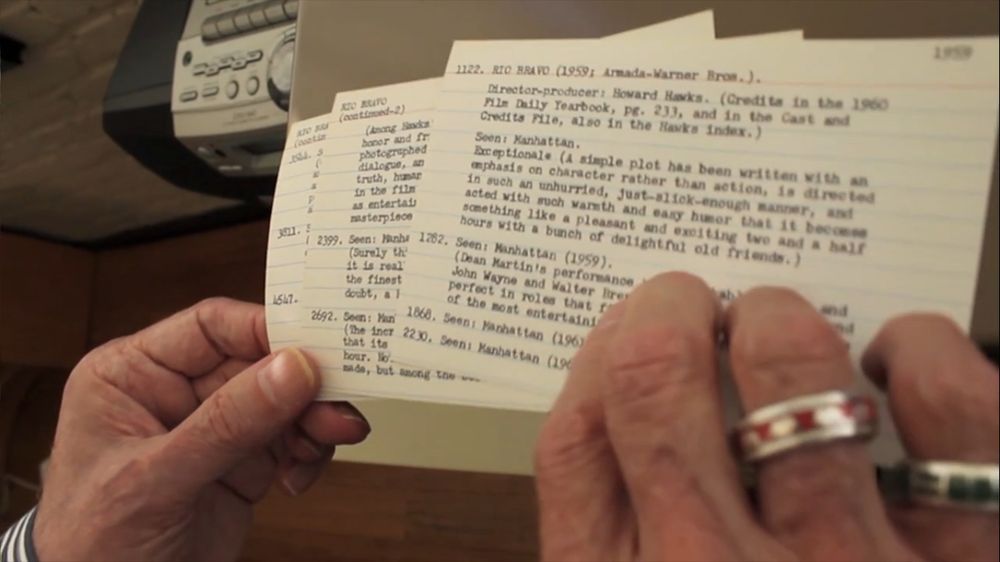 1959
1122. RIO BRAVO (1959; Armada-Warner Bros.).
Director-producer: Howard Hawks. (Credits in the 1960
Film Daily Yearbook, pg. 233, and in the Cast and
Credits File, also in the Hawks index.)
Seen: Manhattan.
Exceptional* (A simple plot has been written with an
emphasis on character rather than action, is directed
in such an unhurried, just-slick-enough manner, and
acted with such warmth and easy humor that it becomes
something like a pleasant and exciting two and a half
hours with a bunch of delightful old friends.)
1282. Seen: Manhattan (1959).
(Dean Martin's performance
John Wayne and Walter
perfect in roles that
of the most
1868. Seen: Manhattan
2230. Seen: Manhattan
RIO BRAVO
(continued-2)
(Among Hawks'
honor and
photographed
dialogue, an
truth, human
in the film
as
masterpiece
2399. Seen:
(Surely
it is
the finest
doubt, a
2692. Seen:
(The
that its
hour. No
made, but among the
RIO
3811.
4547.